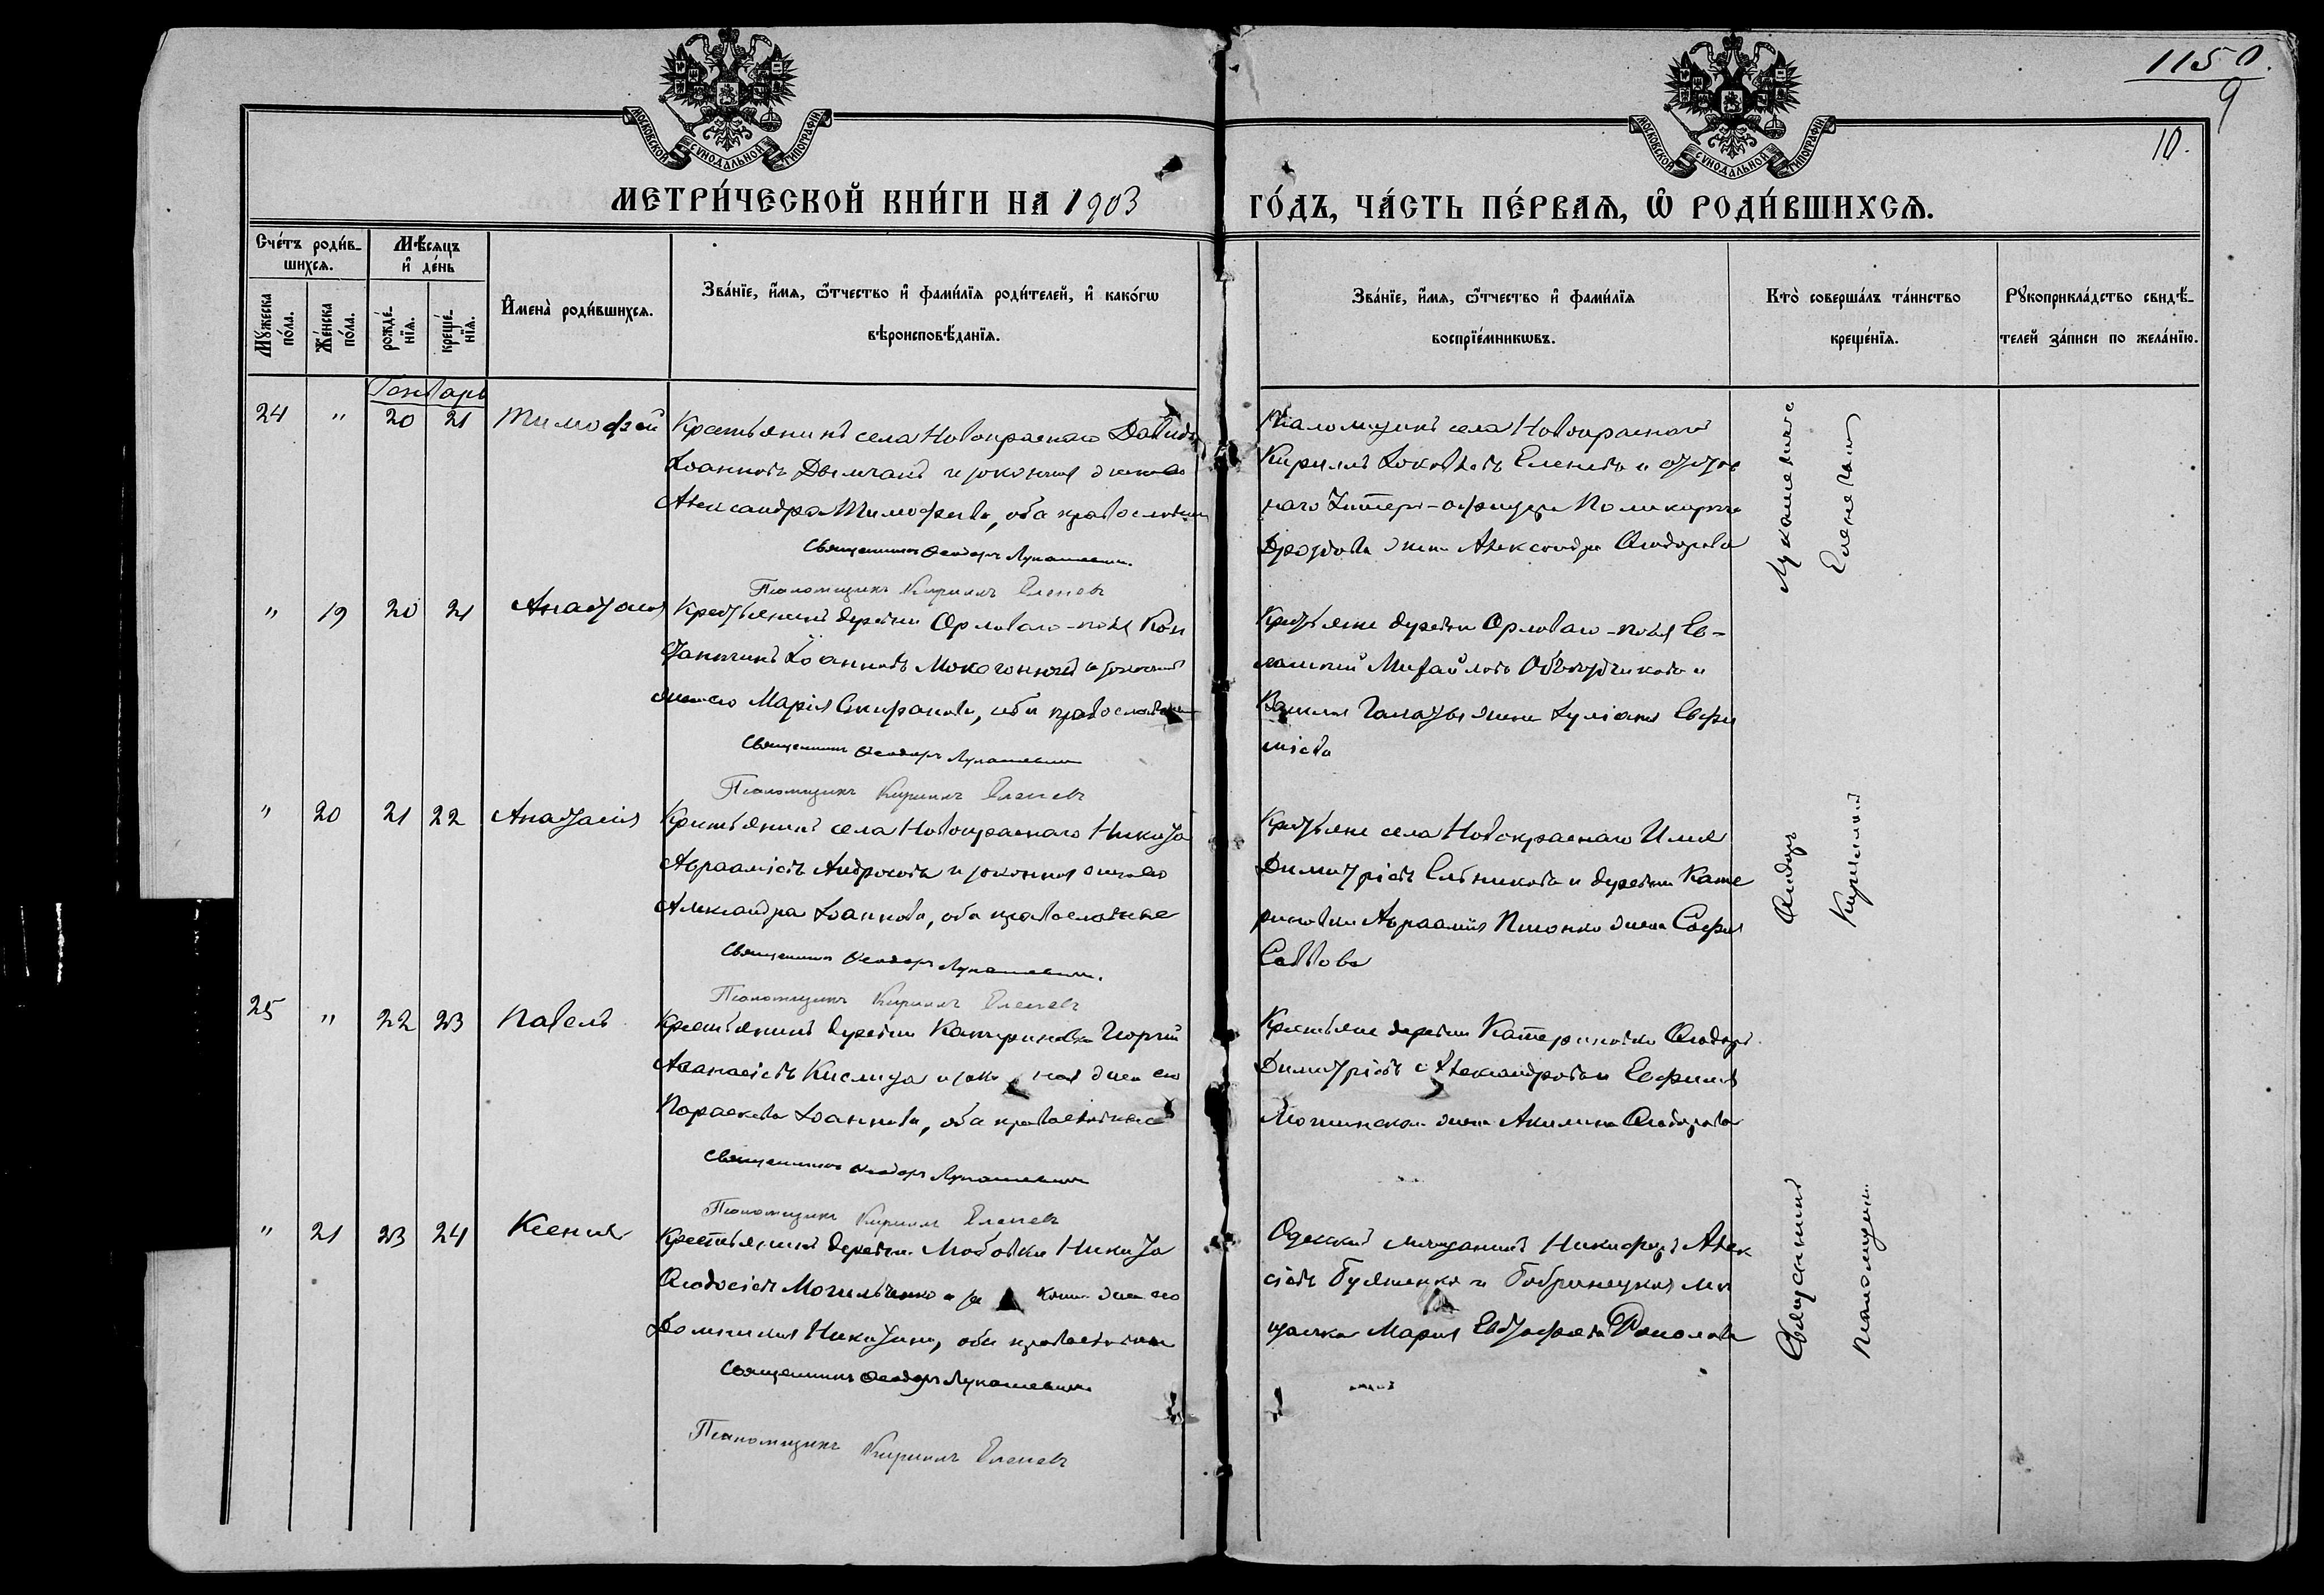 1150
9
10.
МОСКОВСКОЙ СУНОДАЛЬНОЙ ТИПОГРАФІИ
МОСКОВСКОЙ СУНОДАЛЬНОЙ ТИПОГРАФІИ
МЕТРИ́ЧЕСКОЙ КНИ́ГИ НА 1903
ГО́ДЪ, ЧА́СТЬ ПЕ́РВАѦ, Ѡ РОДИ́ВШИХСѦ.
Сче́тъ роди́в-
шихсѧ.
Мѣ́сѧцъ
и де́нь
Мꙋ́жеска
по́ла.
Же́нска
по́ла.
рожде́-
нїѧ.
креще́-
нїѧ.
Имена̀ роди́вшихсѧ.
Зва́нїе, и́мѧ, ѻ҆́тчество и фами́лїѧ роди́телей, и како́гѡ
вѣроисповѣ́данїѧ.
Зва́нїе, и́мѧ, ѻ҆́тчество и фами́лїѧ
воспрїе́мникѡвъ.
Кто̀ соверша́лъ та́инство
креще́нїѧ.
Рꙋкоприкла́дство свидѣ́-
телей за́писи по жела́нїю.
Генварь
24 " 20 21 Тимофей
Крестьянинъ села Новокраснаго Давидъ
Іоанновъ и законная жена его
Александра Тимофеева, оба православны
Священникъ Ѳеодоръ Лукашевич.
Псаломщикъ Кирилъ Еленевъ
Псаломщикъ села Новокраснаго
Кирилъ Іоковлевъ Еленевъ и отстав
наго Унтеръ-офицера Поликарпа
Дроздова жена Александра Ѳеодорова
" 19 20 21 Анастасія
Крестьянинъ деревни Орловаго-поля Кон
стантинъ Іоанновъ и законная
жена его Марія, оба православные
Священникъ Ѳеодоръ Лукашевич
Псаломщикъ Кирилъ Еленевъ
Крестьяне деревни Орловаго-поля Ев-
Михайловъ и
Василія жена Іуліанія Евфи
міева
" 20 21 22 Анастасія
Крестьянинъ села Новокраснаго Никита
Авраамієвъ и законная жена его
Александра Іоаннова, оба православные
Священникъ Ѳеодоръ Лукашевич.
Псаломщикъ Кирилъ Еленевъ
Крестьяне села Новокраснаго Илія
Димитріевъ и деревни Кате
риновки Авраамія жена Софія
Саввова
25 " 22 23 Павелъ
Крестьянинъ деревни Катериновки Георгій
Аѳанасіевъ Кислица и законная жена его
Параскева Іоаннова, оба православные
Священникъ Ѳеодоръ Лукашевич
Псаломщикъ Кирилъ Еленевъ
Крестьяне деревни Катериновки Ѳеодоръ
Димитріевъ Александровъ и Евфимія
жена Акилина Ѳеодорова
" 21 23 24 Ксенія
Крестьянинъ деревни Никита
Ѳеодосіевъ и законная жена его
Домникія Никитина, оба православные
Священникъ Ѳеодоръ Лукашевич
Псаломщикъ Кирилъ Еленевъ
Одесскій мещанинъ Никифоръ Алек
сіевъ и Бобринецкая ме
щанка Марія
Священникъ Ѳеодоръ Лукашевичъ
Псаломщикъ Кириллъ Еленевъ